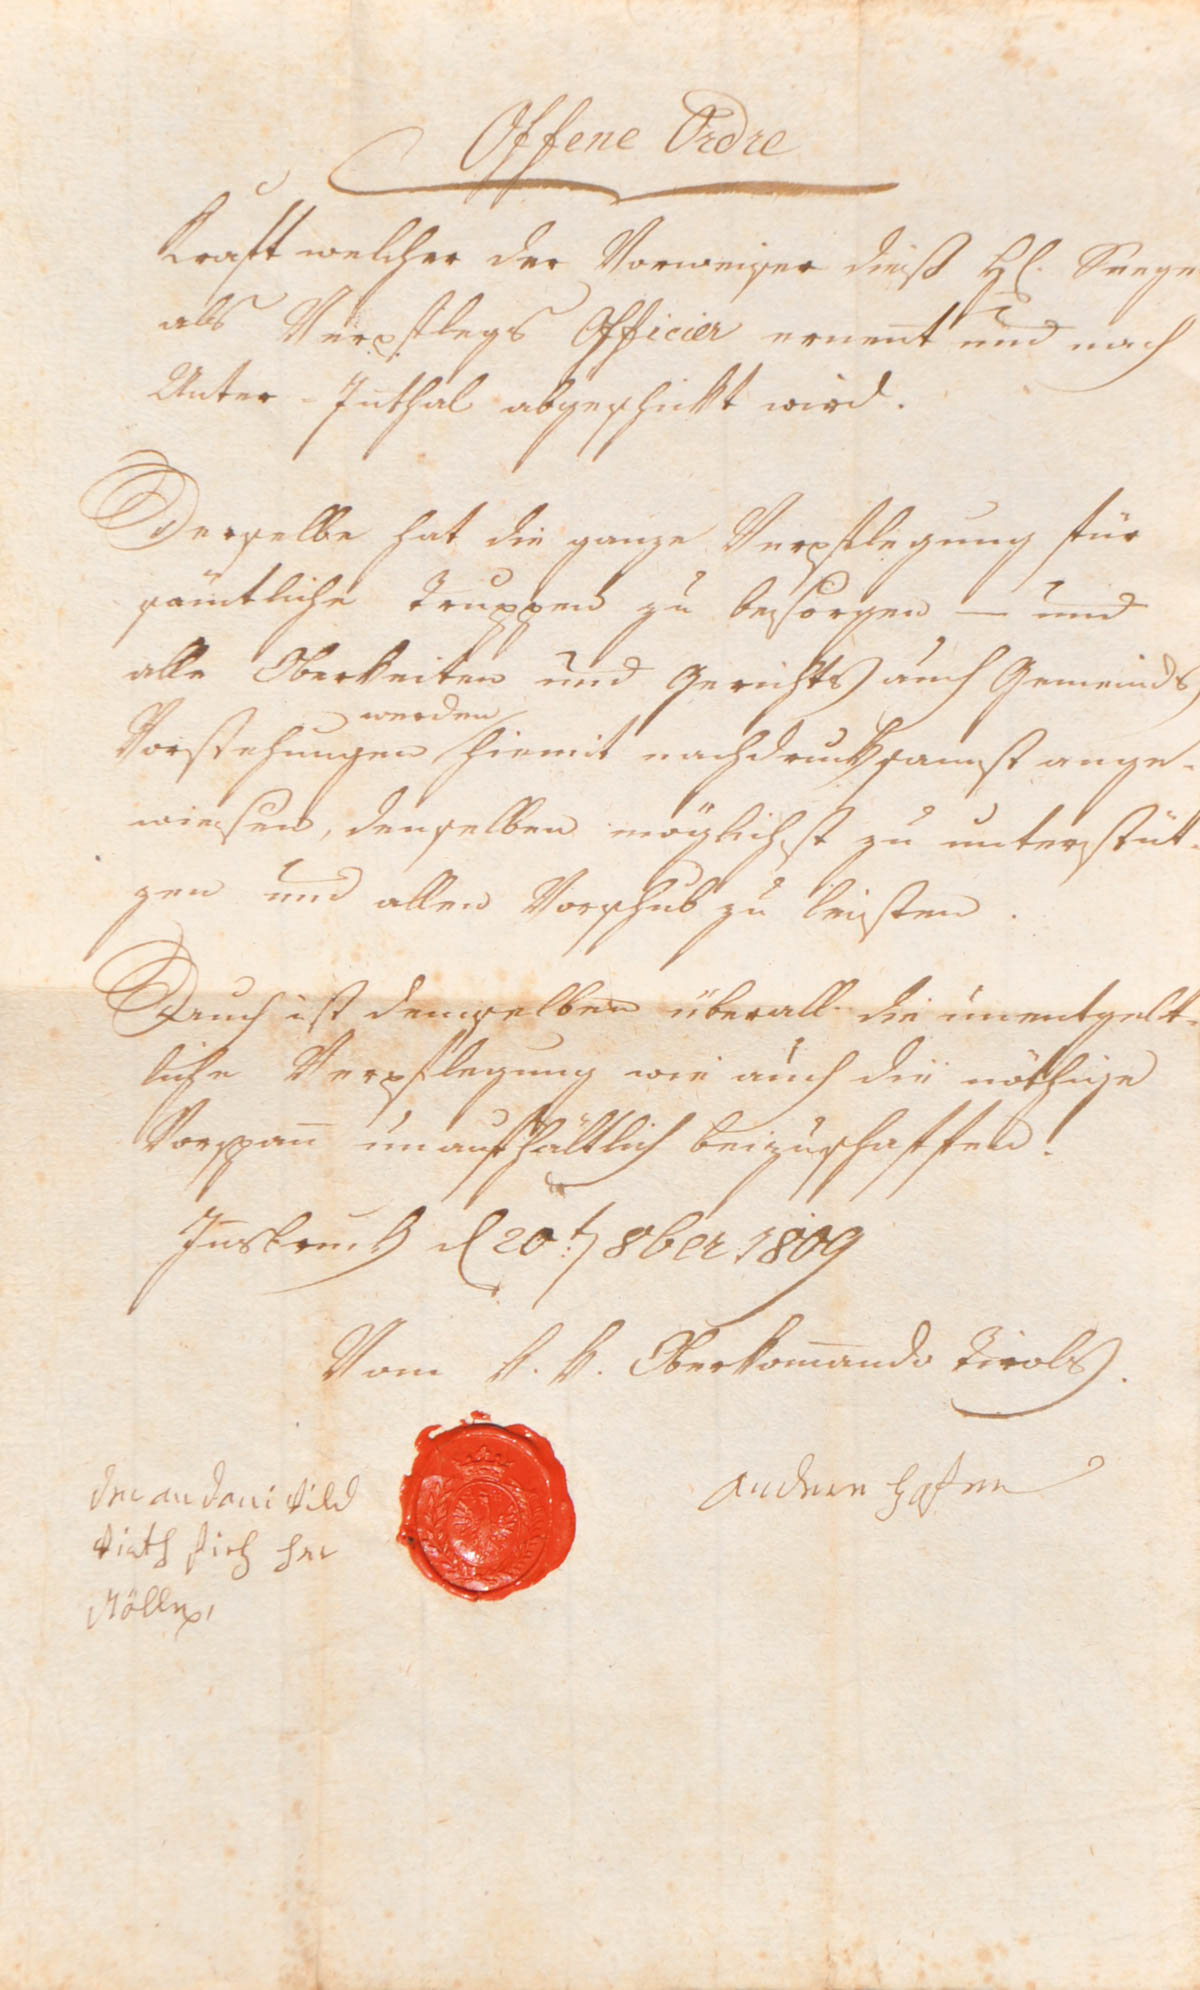 Offene Ordre
Kraft welcher der Vorweiser dieß H. Seege
als Verpflegs Officier ernent und nach
Unter-Inthal abgeschickt wird.
Derselbe hat die ganze Verpflegung für
sämtliche Truppen zu besorgen — und
alle Oberkeiten und Gerichts auch Gemeinds
werden
Vorstehungen hiemit nachdrucksamst ange-
wiesen, denselben möglichst zu unterstüt-
zen und allen Vorschub zu leisten.
Auch ist demselben überall die unentgelt-
liche Verpflegung wie auch die nöthige
Vorspan̄ unaufhältlich beizuschaffen.
Insbruck d 20t 8ber 1809
Vom K. K. Oberkom̄ando Tirols.
Andere Hofer